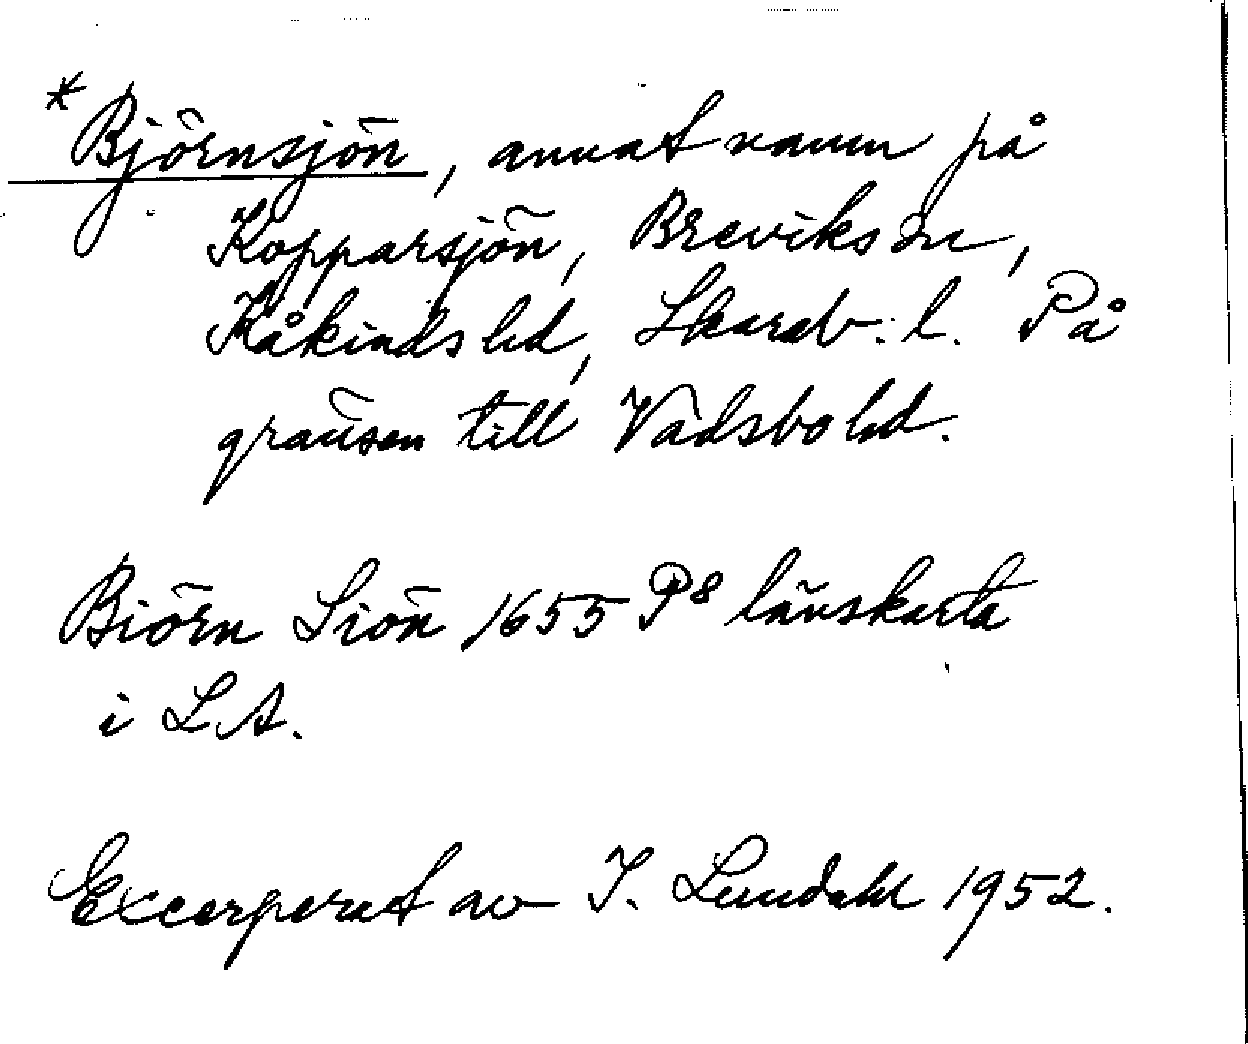 *Björnsjön, annat namn på
Kopparsjön, Breviks sn,
Kåkinds hd, Skarab. l. På
gränsen till Vadsbo hd.
Biörn Siön 1655 P8 länskarta
i LA.
Excerperat av I. Lundahl 1952.